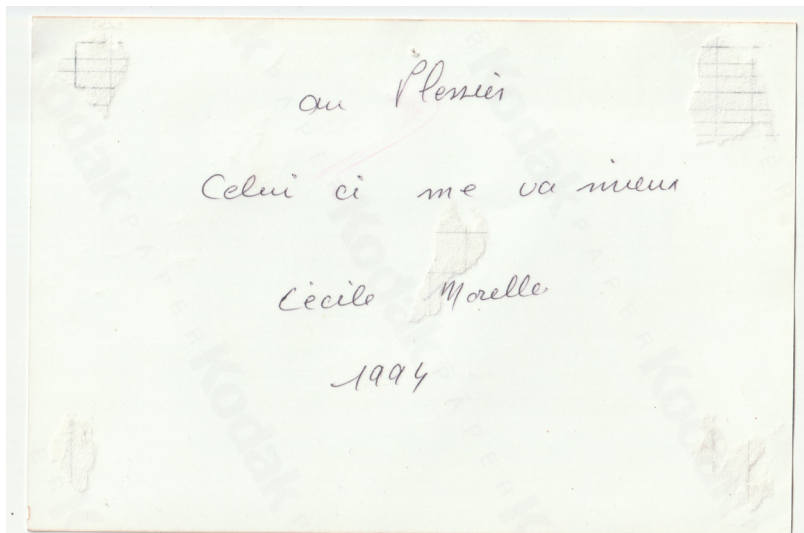 au Plessier
Celui ci me va mieux
Cécile Morelle
1994
Kodak PAPER